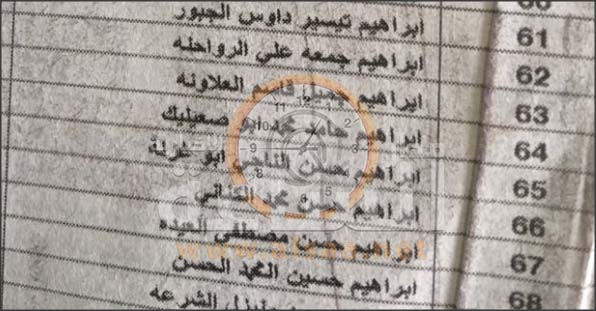 60
ابراهيم تيسير داوس الجبور 61
ابراهيم جمعه علي الرواحله 62
ابراهيم جميل قاسم العلاونه 63
ابراهيم حامد محمد ابو صعيليك 64
ابراهيم محسن الناجي ابو غزلة 65
ابراهيم حسن محمد الكناني 66
ابراهيم حسن مصطفى العبده 67
ابراهيم حسين المحمد الحسن 68
الشرعه